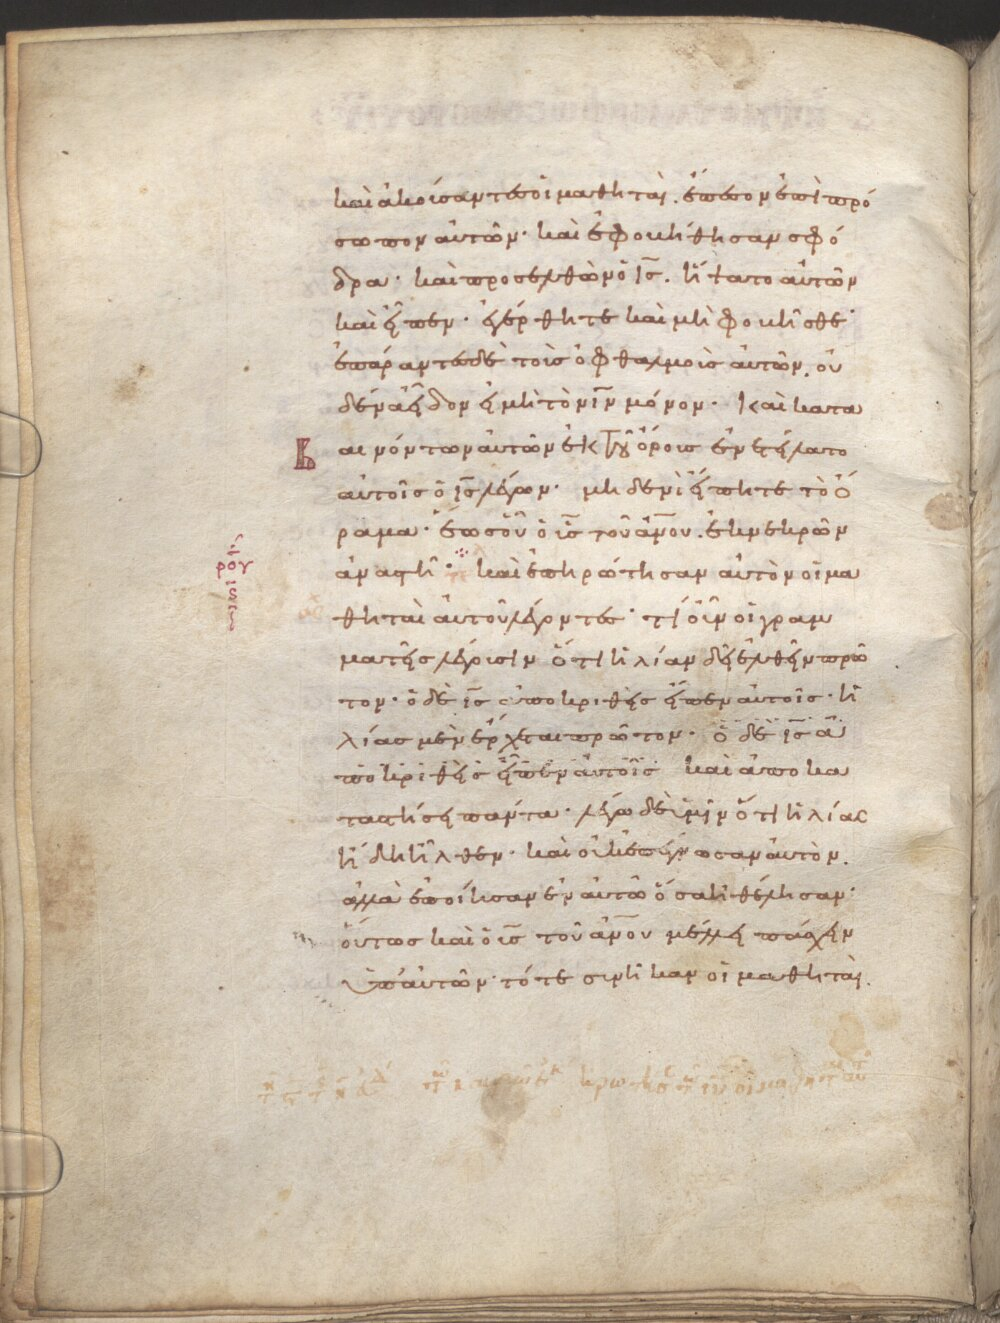 καὶ ἀκούσαντες οἱ μαθηταὶ. ἔπεσον ἐπὶ πρό
σωπον αὐτῶν· καὶ ἐφοβήθησαν σφό
δρα· καὶ προσελθὼν ὁ ις̅. ἥψατο αὐτῶν
καὶ εἶπεν· ἐγέρθητε καὶ μὴ φοβεῖσθε·
ἐπάραντες δὲ τοὺς ὀφθαλμοὺς αὐτῶν. οὐ
δένα εἶδον εἰ μὴ τὸν ιν̅ μόνον· Καὶ κατα
αινόντων αὐτῶν ἐκ τοῦ ὄρους ἐνετείλατο
αὐτοῖς ὁ ις̅ λέγων· μηδενὶ εἴπητε τὸ ὅ
ραμα· ἕως οὗ ὁ υς̅ τοῦ ανου̅. ἐκ νεκρῶν
ἀναστῆ· καὶ ἐπηρώτησαν αὐτὸν οἱ μα
θηταὶ αὐτοῦ λέγοντες· τί οὖν οἱ γραμ
ματεῖς λέγουσιν ὅτι ἠλίαν δεῖ ἐλθεῖν πρῶ
τον· ὁ δὲ ις̅ ἀποκριθεὶς εἶπεν αὐτοῖς· ἠ
λίας μὲν ἔρχεται πρῶτον· ὁ δὲ ις̅ ἀ
ποκριθεὶς εἶπεν αὐτοῖς καὶ ἀποκα
ταστήσει πάντα· λέγω δὲ ὑμῖν ὅτι ἠλίας
ἤδη ἦλθεν· καὶ οὐκ ἐπέγνωσαν αὐτὸν.
ἀλλὰ ἐποίησαν ἐν αὐτῶ ὅσα ἠθέλησαν·
οὕτως καὶ ὁ υς̅ τοῦ ανου̅ μέλλει πάσχειν
ὑπ' αὐτῶν· τότε συνῆκαν οἱ μαθηταὶ.